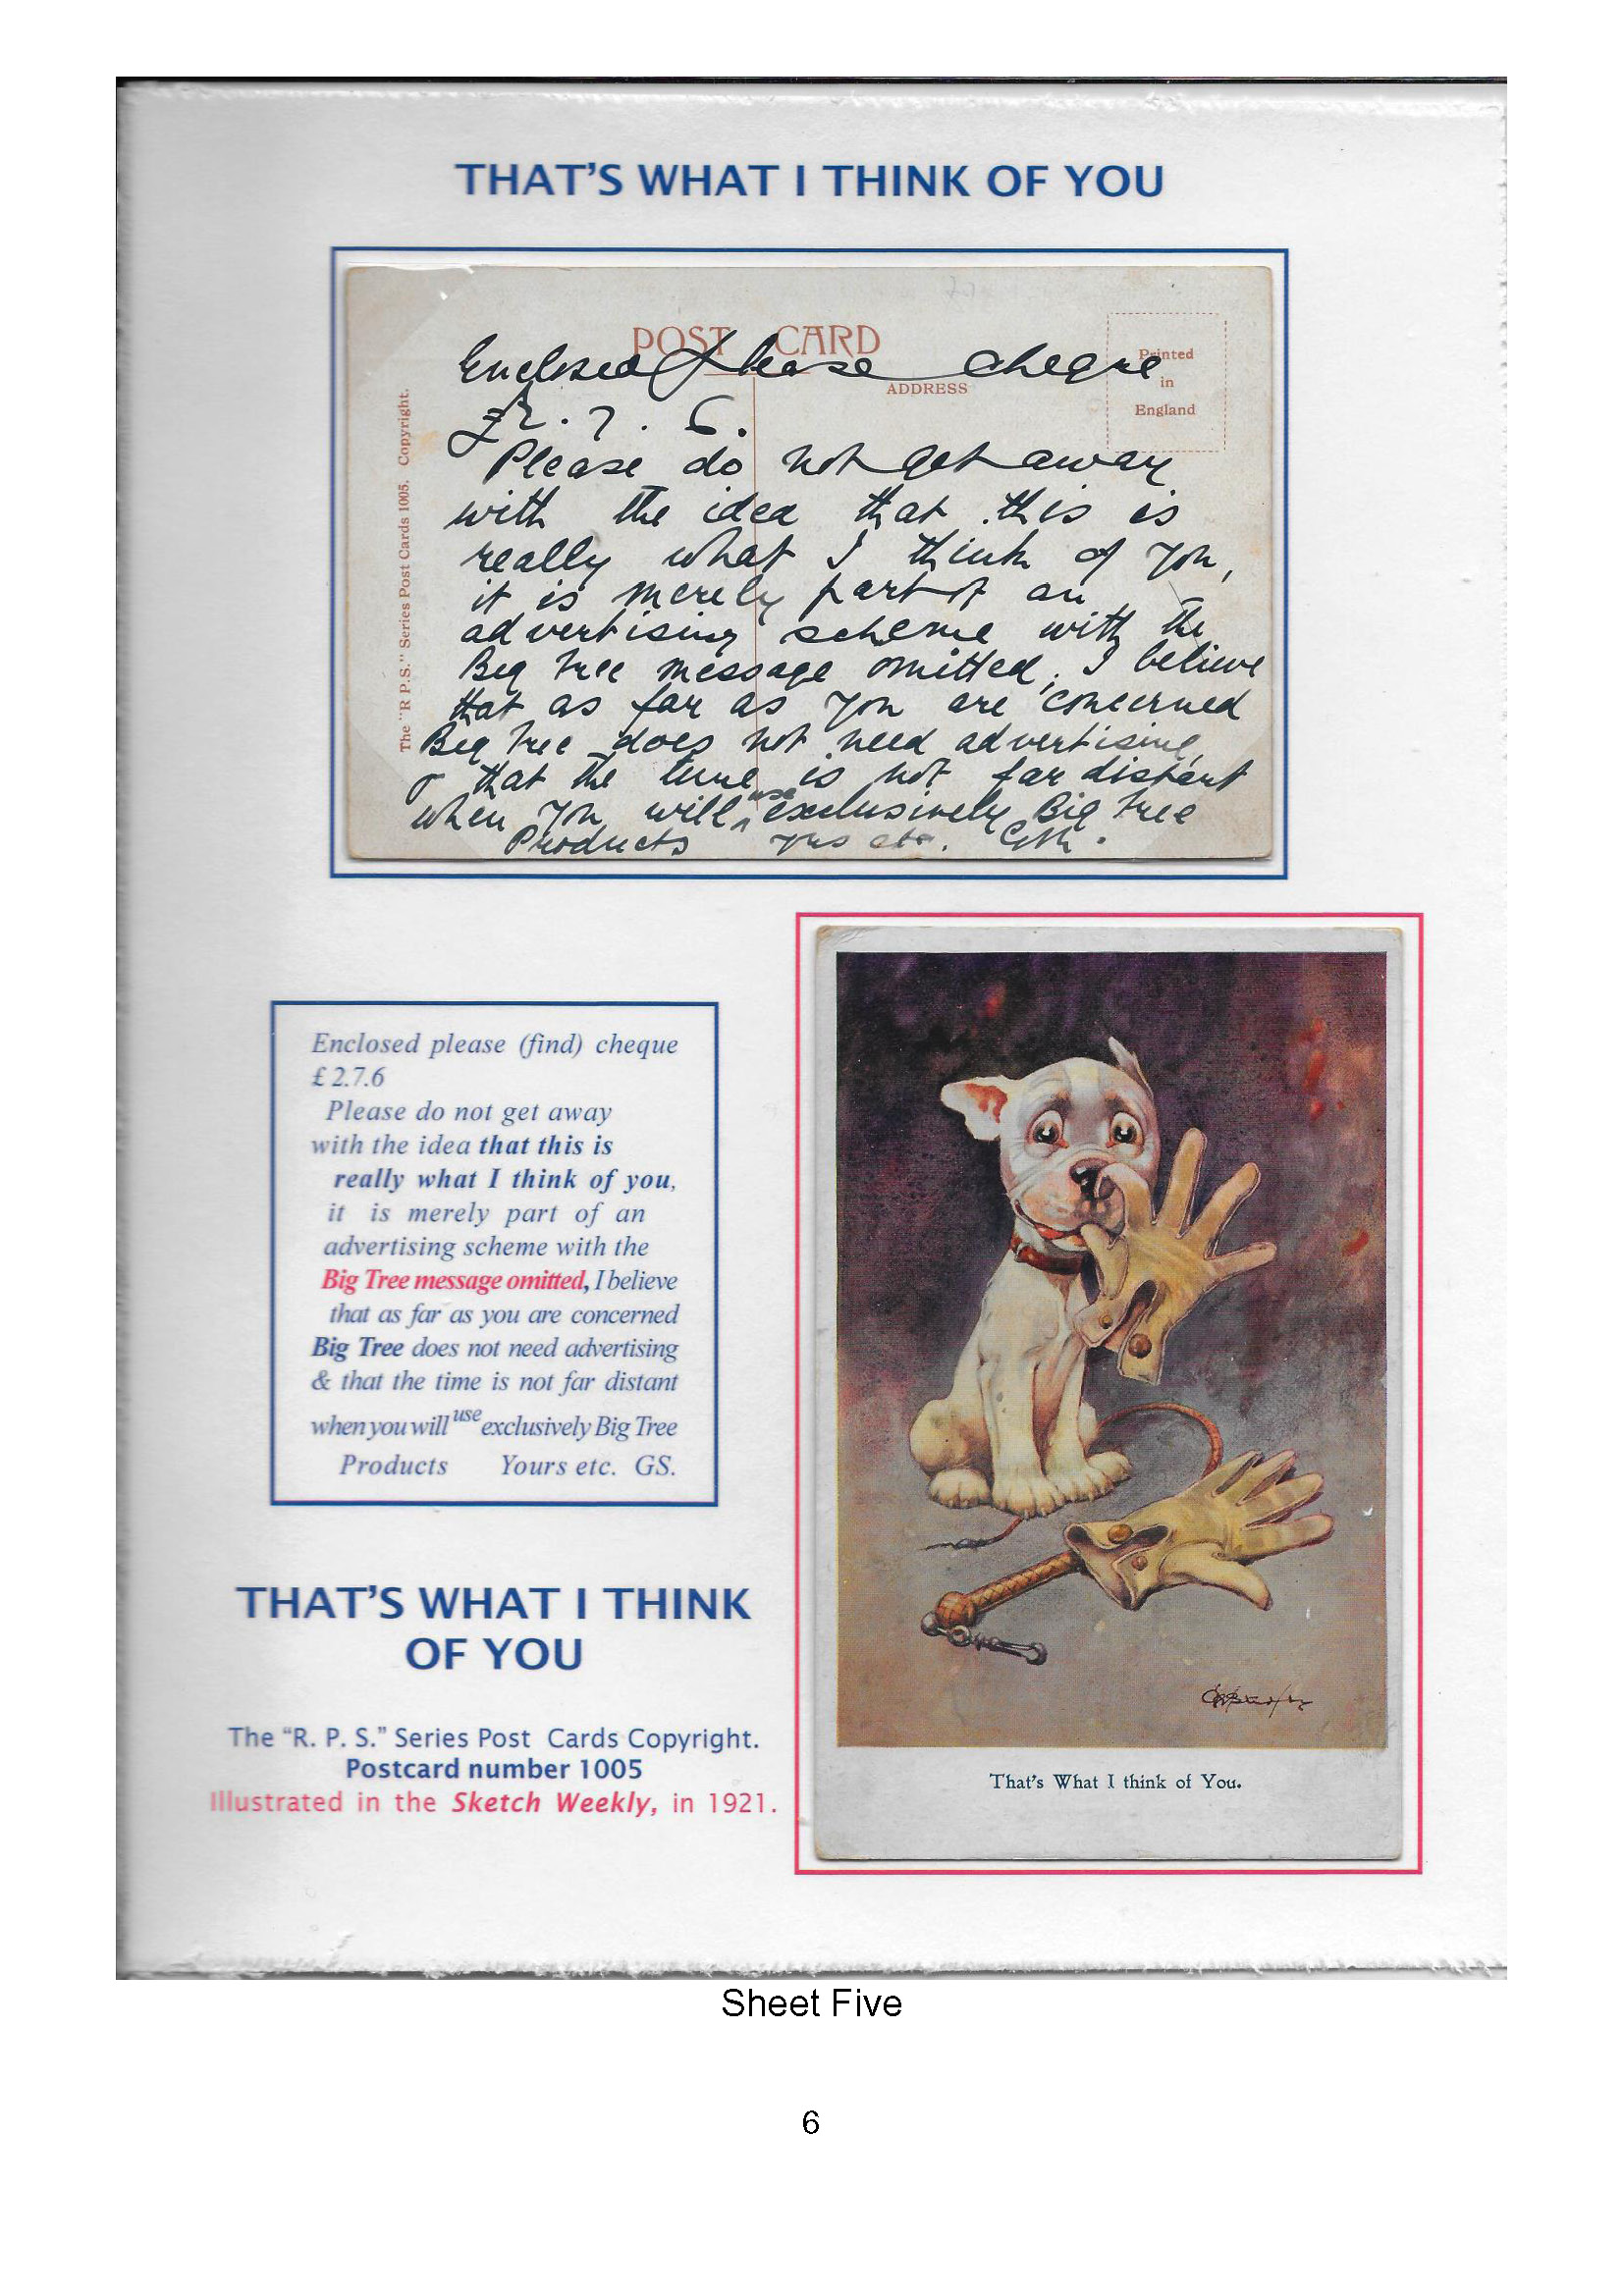 THAT'S WHAT I THINK OF YOU
POST CARD
ADDRESS
Printed
in
England
The "R P.S." Series Post Cards 1005. Copyright.
Enclosed please cheque
£2.7.6.
Please do not get away
with the idea that this is
really what I think of you,
it is merely part of an
advertising scheme with the
Big Tree message omitted, I believe
that as far as you are concerned
Big Tree does not need advertising
& that the time is not far distant
when you will use exclusively Big Tree
Products yrs etc.
Enclosed please (find) cheque
£ 2.7.6
Please do not get away
with the idea that this is
really what I think of you,
it is merely part of an
advertising scheme with the
Big Tree message omitted, I believe
that as far as you are concerned
Big Tree does not need advertising
& that the time is not far distant
when you will use exclusively Big Tree
Products Yours etc. GS.
THAT'S WHAT I THINK
OF YOU
The "R. P. S." Series Post Cards Copyright.
Postcard number 1005
Illustrated in the Sketch Weekly, in 1921.
That's What I think of You.
Sheet Five
6